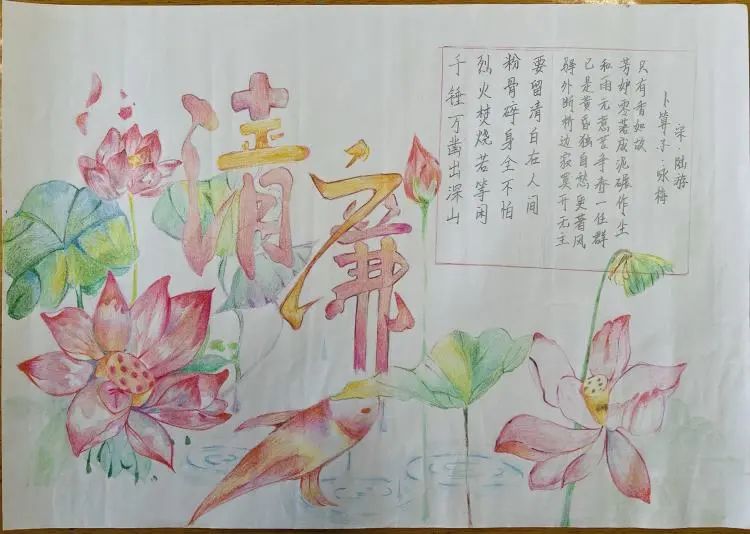 清廉
千锤万凿出深山
烈火焚烧若等闲
粉骨碎身全不怕
要留清白在人间
驿外断桥边寂寞开无主
已是黄昏独自愁更著风
和雨无意苦争春一任群
芳妒零落成泥碾作尘
只有香如故
卜算子·咏梅
宋 陆游